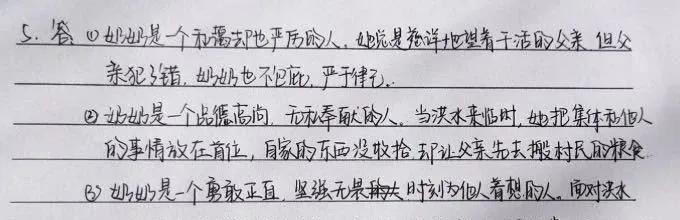 5. 答 ①奶奶是一个和蔼却也严厉的人。她总是慈祥地望着干活的父亲,但父
亲犯了错,奶奶也不包庇,严于律己。
②奶奶是一个品德高尚,无私奉献的人。当洪水来临时,她把集体和他人
的事情放在首位,自家的东西没收拾却让父亲先去搬村民的粮食
③奶奶是一个勇敢正直,坚强无畏 时刻为他人着想的人。面对洪水